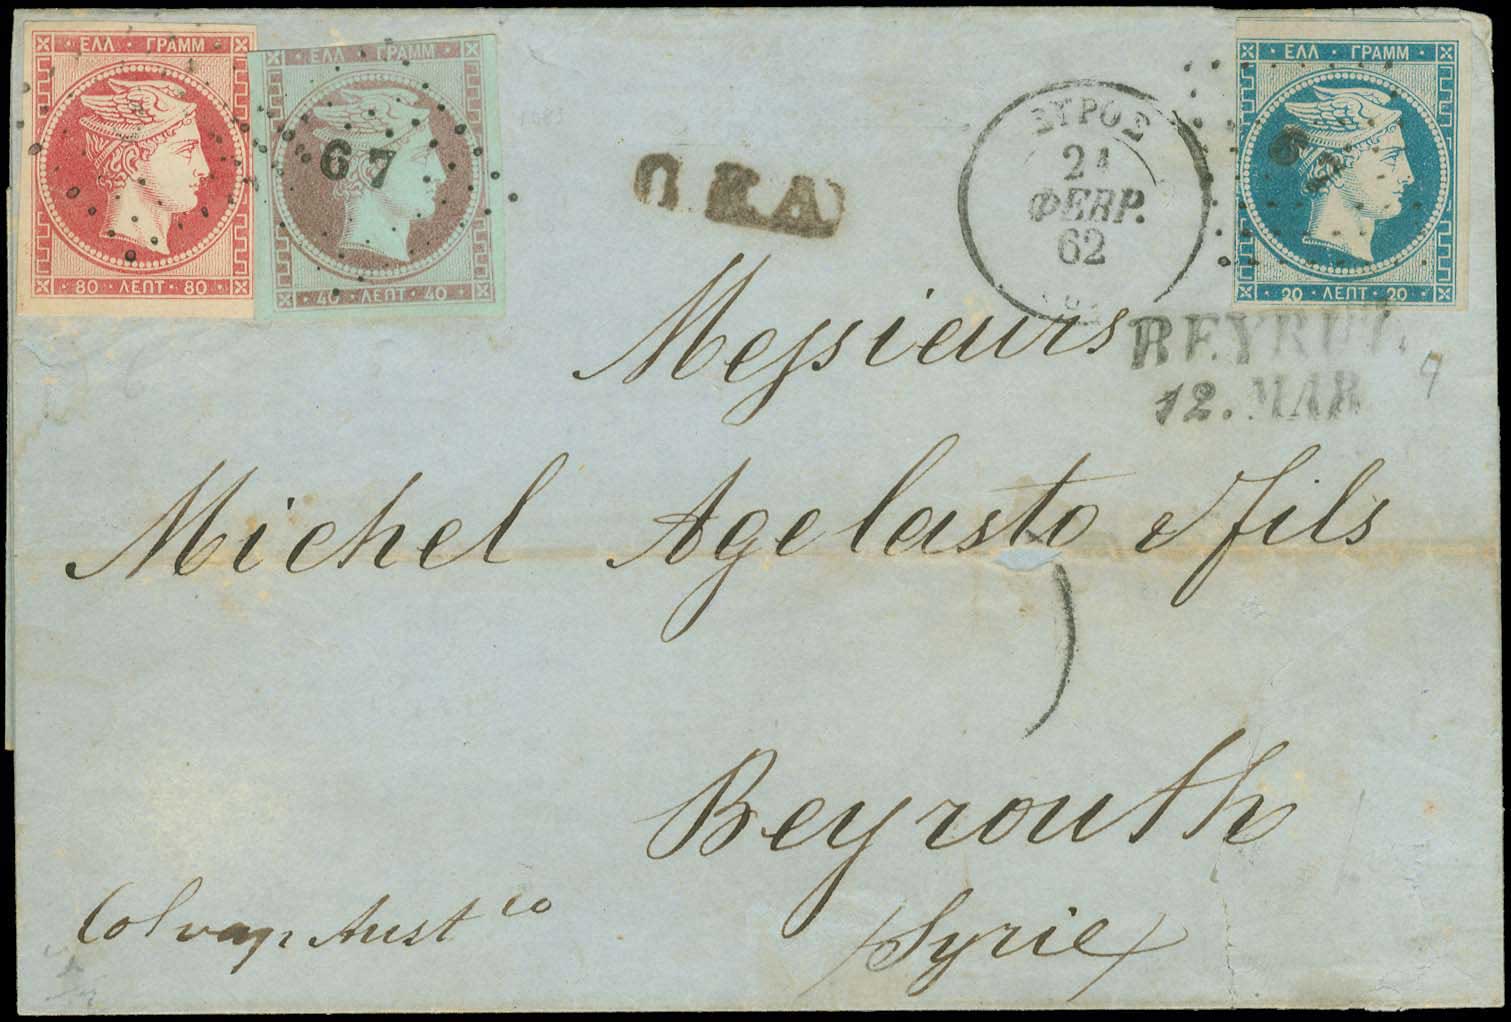 ΕΛΛ ΓΡΑΜΜ
80 ΛΕΠΤ 80
ΕΛΛ ΓΡΑΜΜ
67
40 ΛΕΠΤ 40
ΣΥΡΟΣ
21
ΦΕΒΡ.
62
ΕΛΛ ΓΡΑΜΜ
6
20 ΛΕΠΤ 20
BEYRUT.
12. MAR
9
Messieurs
Michel Agelasto & fils
Beyrouth
Syrie
Col vap Aust co